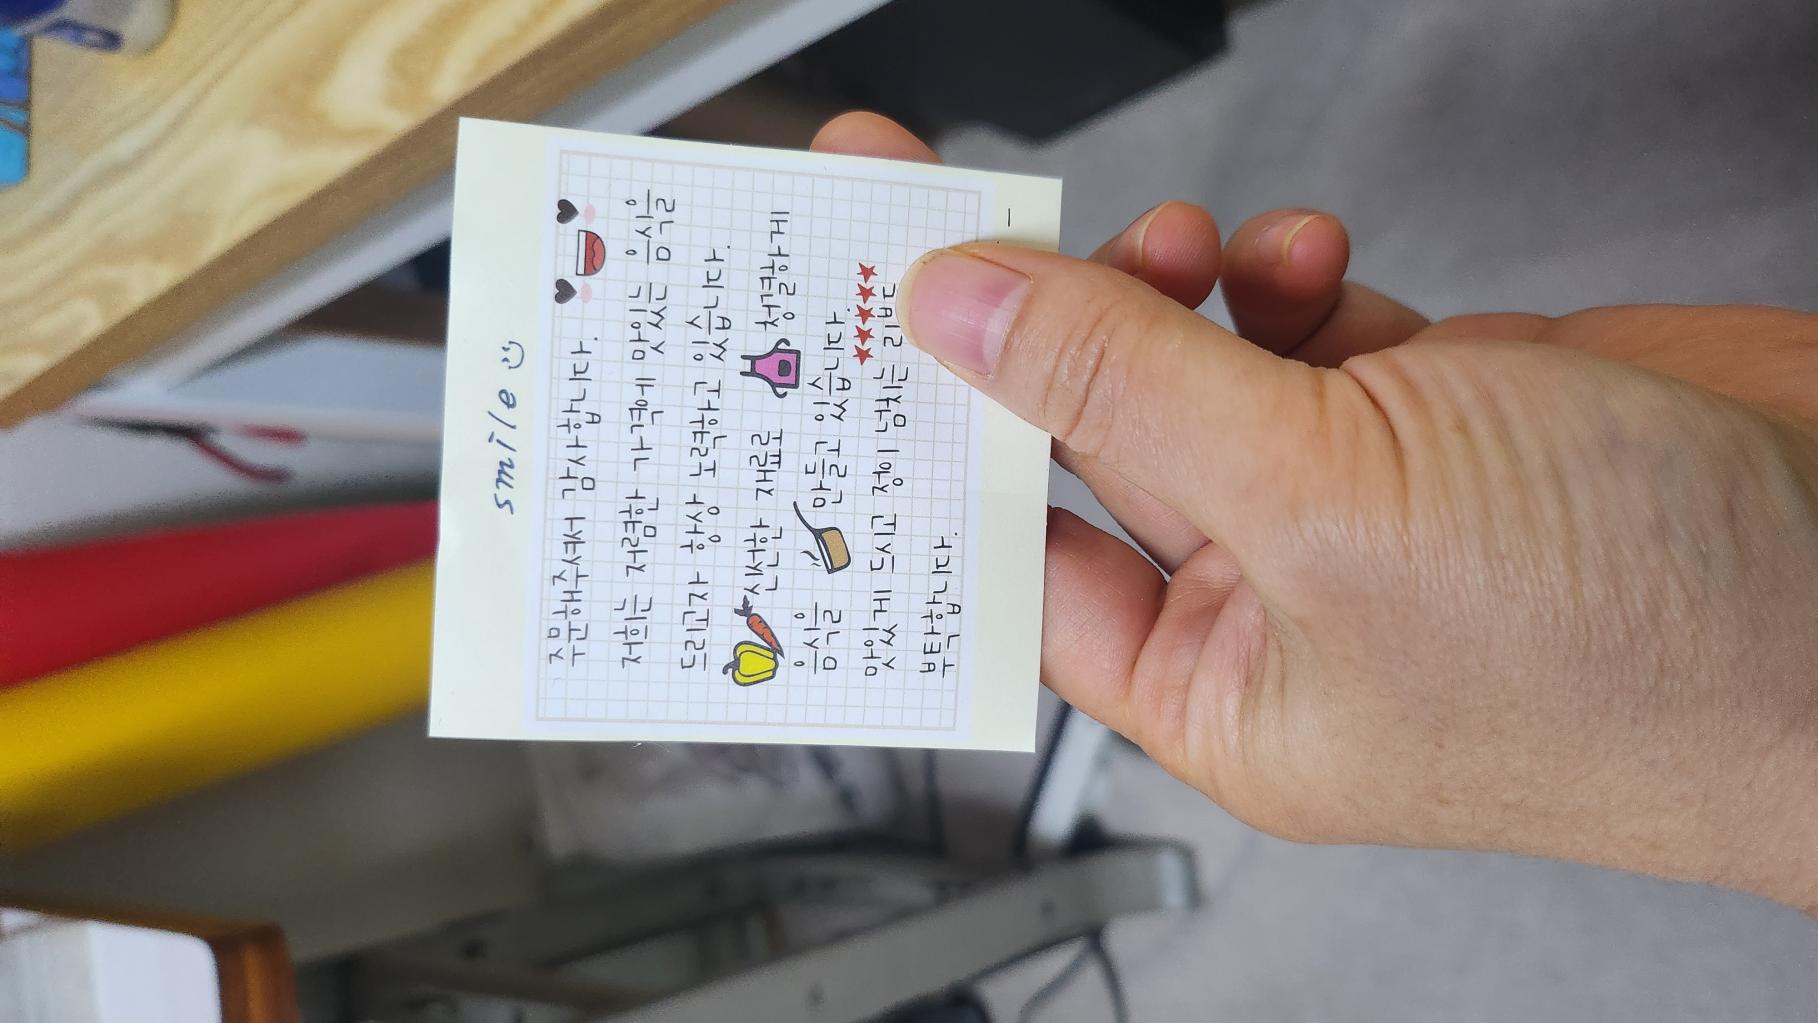 smile
주문해주셔서 감사합니다.
저희는 저렴한 가격에 맛있는 음식을
드리고자 항상 노력하고 있습니다.
신선한 재료 청결하게
음식을 담고 있습니다
맛있게 드시고 찜이랑 리뷰
부탁합니다.